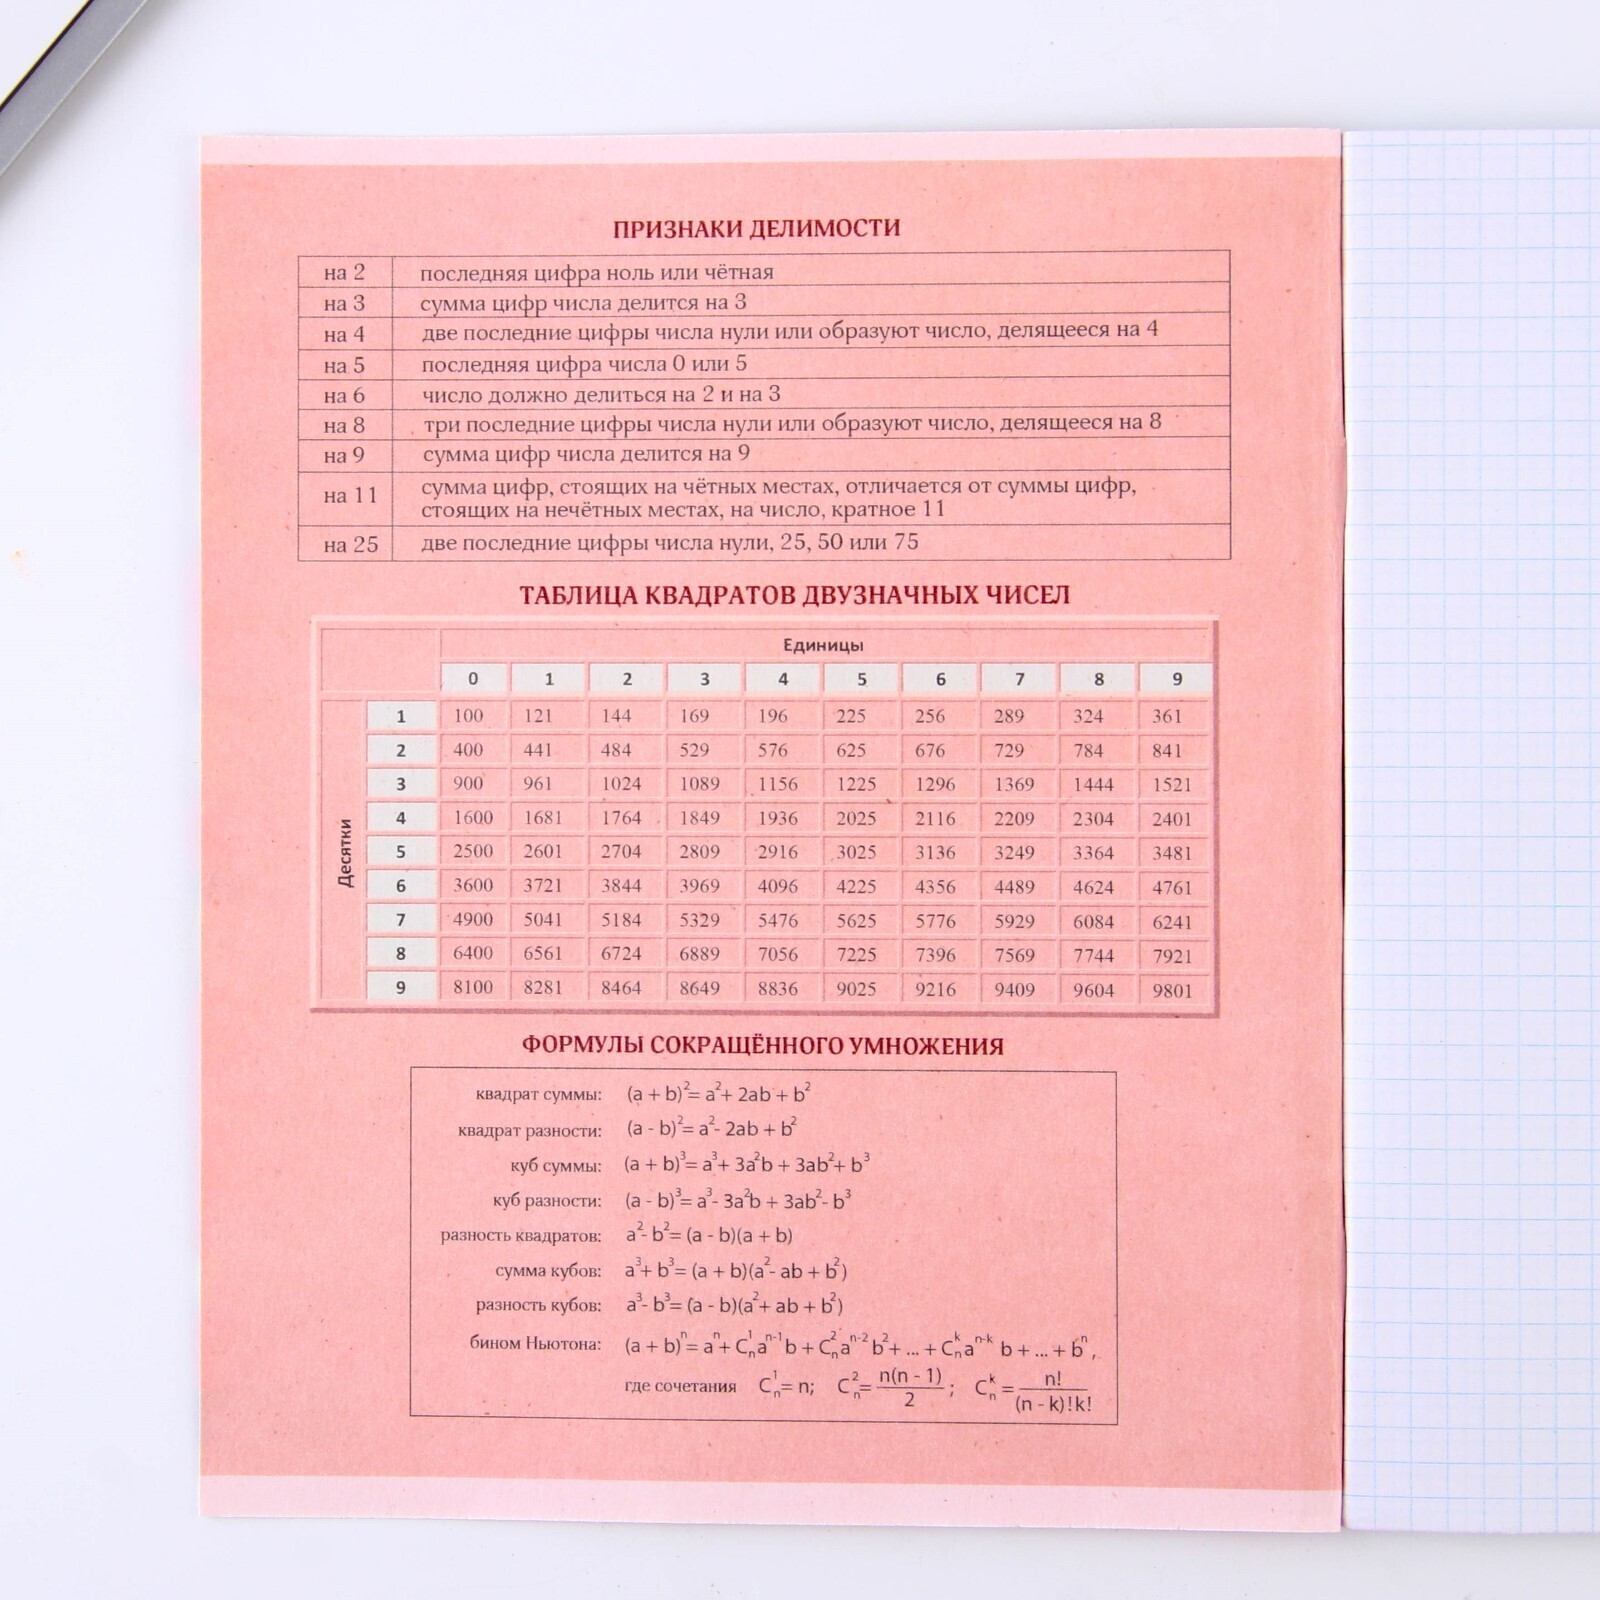 ПРИЗНАКИ ДЕЛИМОСТИ
на 2 последняя цифра ноль или чётная
на 3 сумма цифр числа делится на 3
на 4 две последние цифры числа нули или образуют число, делящееся на 4
на 5 последняя цифра числа 0 или 5
на 6 число должно делиться на 2 и на 3
на 8 три последние цифры числа нули или образуют число, делящееся на 8
на 9 сумма цифр числа делится на 9
на 11 сумма цифр, стоящих на чётных местах, отличается от суммы цифр,
стоящих на нечётных местах, на число, кратное 11
на 25 две последние цифры числа нули, 25, 50 или 75
ТАБЛИЦА КВАДРАТОВ ДВУЗНАЧНЫХ ЧИСЕЛ
Единицы
0 1 2 3 4 5 6 7 8 9
Десятки
1 100 121 144 169 196 225 256 289 324 361
2 400 441 484 529 576 625 676 729 784 841
3 900 961 1024 1089 1156 1225 1296 1369 1444 1521
4 1600 1681 1764 1849 1936 2025 2116 2209 2304 2401
5 2500 2601 2704 2809 2916 3025 3136 3249 3364 3481
6 3600 3721 3844 3969 4096 4225 4356 4489 4624 4761
7 4900 5041 5184 5329 5476 5625 5776 5929 6084 6241
8 6400 6561 6724 6889 7056 7225 7396 7569 7744 7921
9 8100 8281 8464 8649 8836 9025 9216 9409 9604 9801
ФОРМУЛЫ СОКРАЩЁННОГО УМНОЖЕНИЯ
квадрат суммы: (a + b)²= a²+ 2ab + b²
квадрат разности: (a - b)²= a²- 2ab + b²
куб суммы: (a + b)³= a³+ 3a²b + 3ab²+ b³
куб разности: (a - b)³= a³- 3a²b + 3ab²- b³
разность квадратов: a²- b²= (a - b)(a + b)
сумма кубов: a³+ b³= (a + b)(a²- ab + b²)
разность кубов: a³- b³= (a - b)(a²+ ab + b²)
бином Ньютона: (a + b)ⁿ= aⁿ+ Cₙ¹aⁿ⁻¹ b + Cₙ²aⁿ⁻² b²+ ... + Cₙᵏaⁿ⁻ᵏ b + ... + bⁿ,
где сочетания Cₙ¹= n; Cₙ²= n(n - 1)/2 ; Cₙᵏ = n!/(n - k)!k!